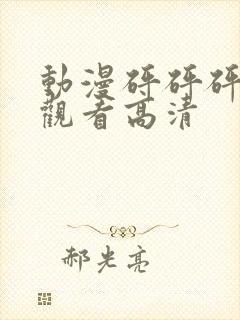 動漫砰砰砰
觀看高清
郝光亮